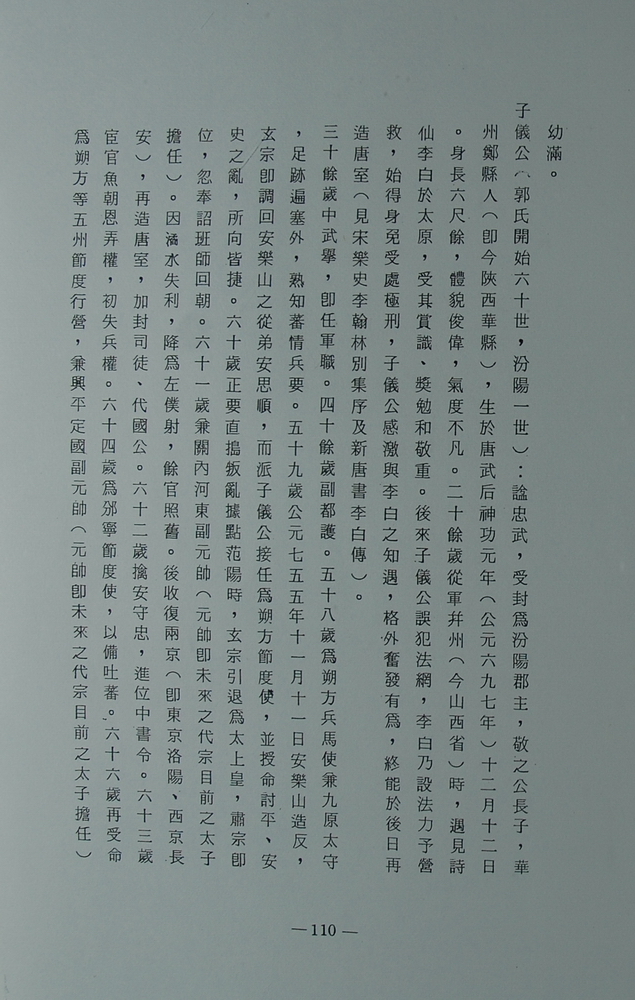 幼滿。
子儀公（郭氏開始六十世，汾陽一世）：諡忠武，受封爲汾陽郡主，敬之公長子，華
州鄭縣人（卽今陝西華縣），生於唐武后神功元年（公元六九七年）十二月十二日
。身長六尺餘，體貌俊偉，氣度不凡。二十餘歲從軍幷州（今山西省）時，遇見詩
仙李白於太原，受其賞識、奬勉和敬重。後來子儀公誤犯法網，李白乃設法力予營
救，始得身免受處極刑，子儀公感激與李白之知遇，格外奮發有爲，終能於後日再
造唐室（見宋樂史李翰林別集序及新唐書李白傳）。
三十餘歲中武擧，卽任軍職。四十餘歲副都護。五十八歲爲朔方兵馬使兼九原太守
，足跡遍塞外，熟知蕃情兵要。五十九歲公元七五五年十一月十一日安樂山造反，
玄宗卽調回安樂山之從弟安思順，而派子儀公接任爲朔方節度使，並授命討平、安
史之亂，所向皆捷。六十歲正要直搗叛亂據點范陽時，玄宗引退爲太上皇，肅宗卽
位，忽奉詔班師回朝。六十一歲兼關內河東副元帥（元帥卽未來之代宗目前之太子
擔任）。因潏水失利，降爲左僕射，餘官照舊。後收復兩京（卽東京洛陽、西京長
安），再造唐室，加封司徒、代國公。六十二歲擒安守忠，進位中書令。六十三歲
宦官魚朝恩弄權，初失兵權。六十四歲爲邠寧節度使，以備吐蕃。六十六歲再受命
爲朔方等五州節度行營，兼興平定國副元帥（元帥卽未來之代宗目前之太子擔任）
—110—